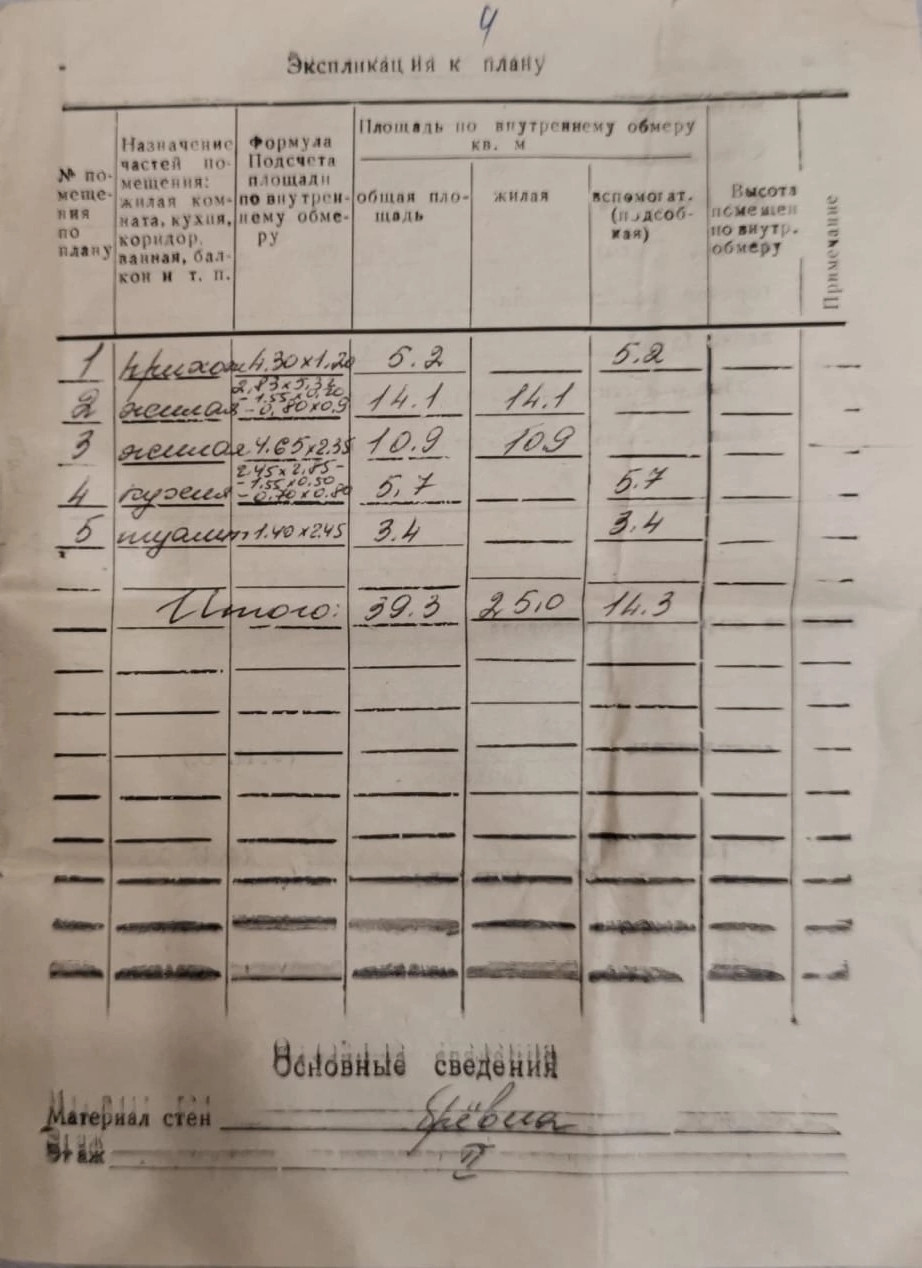 4
Экспликация к плану
№ по-
меще-
ния
по
плану
Назначение
частей по-
мещения:
жилая ком-
ната, кухня,
коридор,
ванная, бал-
кон и т. п.
Формула
Подсчета
площади
по внутрен-
нему обме-
ру
Площадь по внутреннему обмеру
кв. м
общая пло-
щадь
жилая
вспомогат.
(подсоб-
ная)
Высота
помещен
по внутр.
обмеру
Примечание
1 прихож 4.30×1.20 5.2 5.2
2,83×5,34
- 1.55×0,20
2 жилая - 0,80×0,9 14.1 14.1
3 жилая 4.65×2.35 10.9 10.9
2,45×2,85-
- 1.55×0.50
4 кухня - 0,70×0.80 5,7 5.7
5 туалет 1.40×2.45 3.4 3.4
Итого: 39.3 25,0 14.3
Основные сведения
Материал стен брёвна
Этаж II